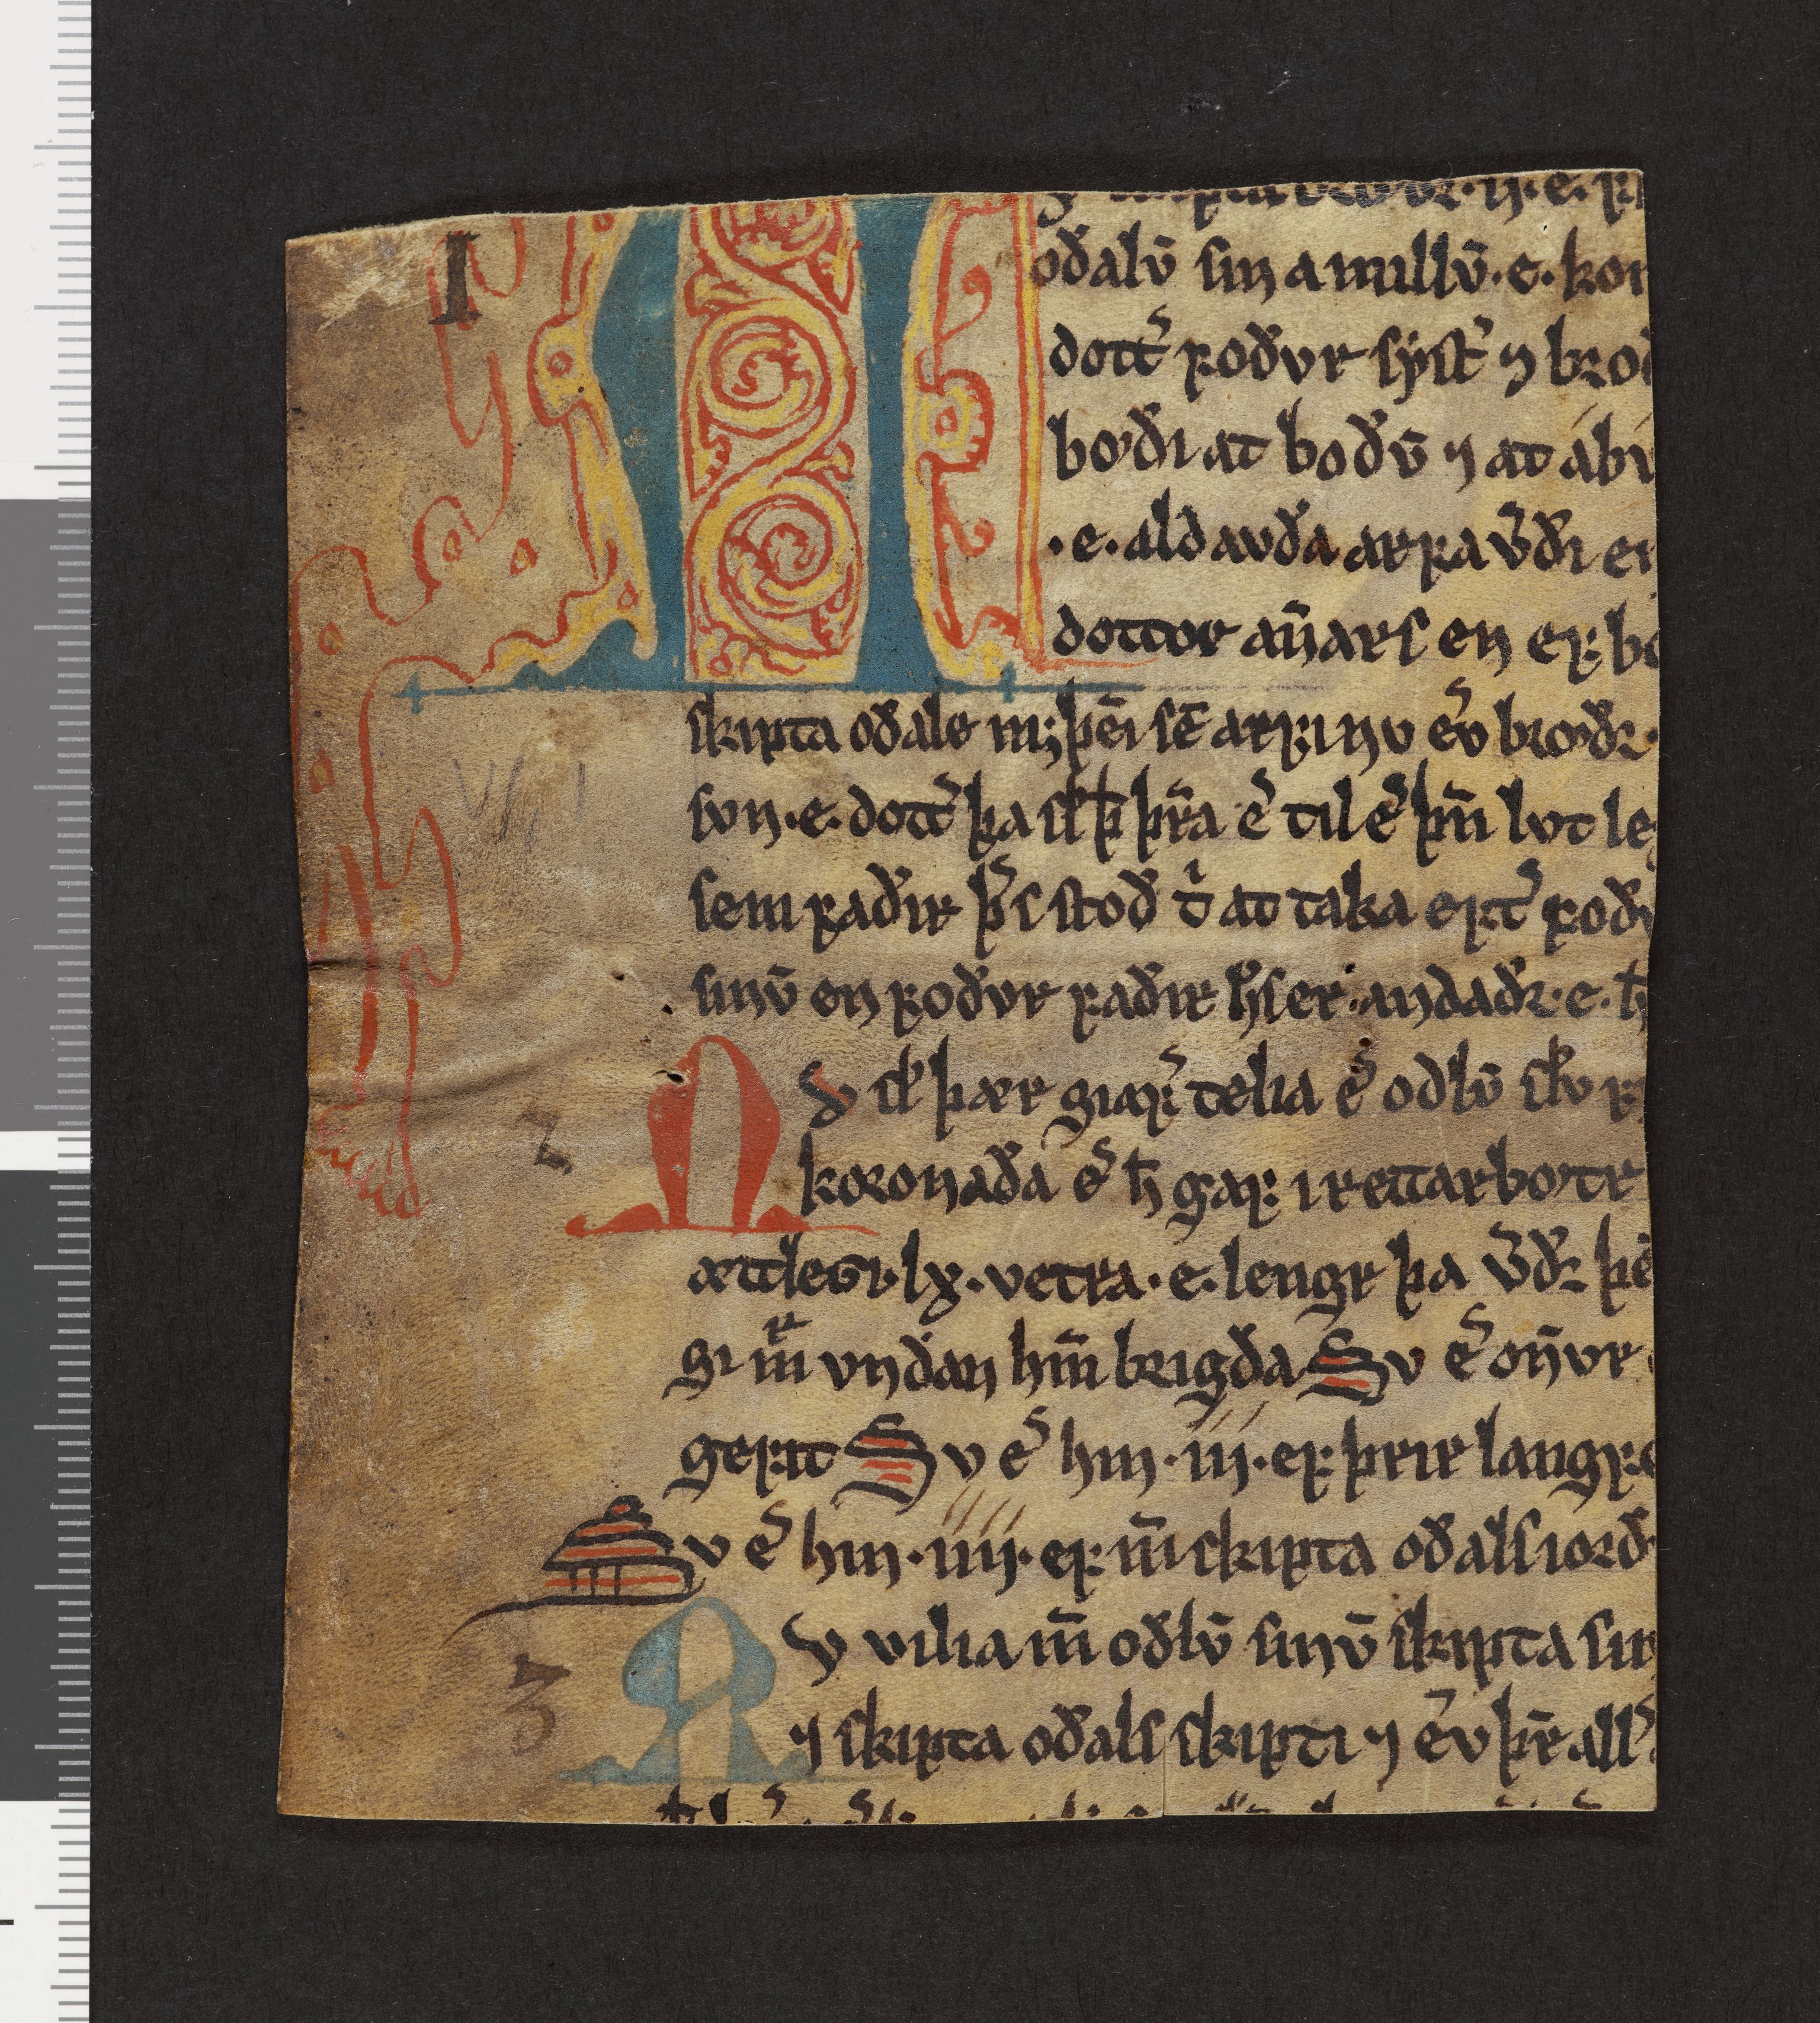 I
oðalū sin a millū·e·kon
dott͛ ꝼoðvr syst͛ ⁊ broð
bøði at boðū ⁊ at ábv
·e·aldavða arꝼa v͛ði en
dottor an̄ars en eꝼ bø
skipta oðale m; þēi sē arꝼi nv ē͛v brøðr·
svn·e·dott͛ þa sl̄ þ þr̄a e͛ til e͛ þm̄ lvt le
sem ꝼaðir þ͛s stoð t̄ at taka eꝼt͛ ꝼoðv
sinū en ꝼoðvr ꝼaðir h̄s er andaðr·e·h̄
2
N v sl̄ þær giaꝼ͛ telia e͛ odlū skv ꝼ
koronaða e͛ h̄ gaꝼ i rettarbøtr
ættlegı·lx·vetra·e·lengr þa v͛ðr þē
gi m̄ vndan hm̄ brigða Sv e͛ on̄vr
geꝼit Sv e͛ hin·iij·eꝼ þrir langꝼe
Sv e͛ hin·iiij·eꝼ m̄ skipta oðalsiorð
3
N v vilia m̄ oðlū sinū skipta sin
⁊ skipta oðals skipti ⁊ ē͛v þr̄ all͛